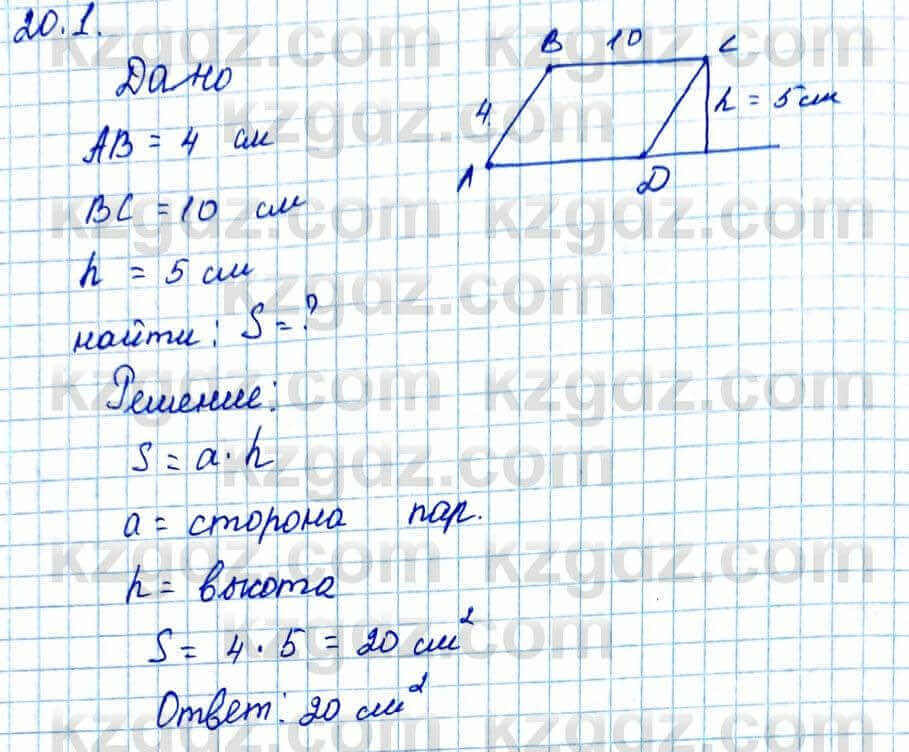 20.1.
Дано
AB = 4 см
BC = 10 см
h = 5 см
найти: S = ?
B 10 C
4
h = 5 см
A
D
Решение:
S = a · h
a = сторона пар.
h = высота
S = 4 · 5 = 20 см²
Ответ: 20 см²
kzgdz.com